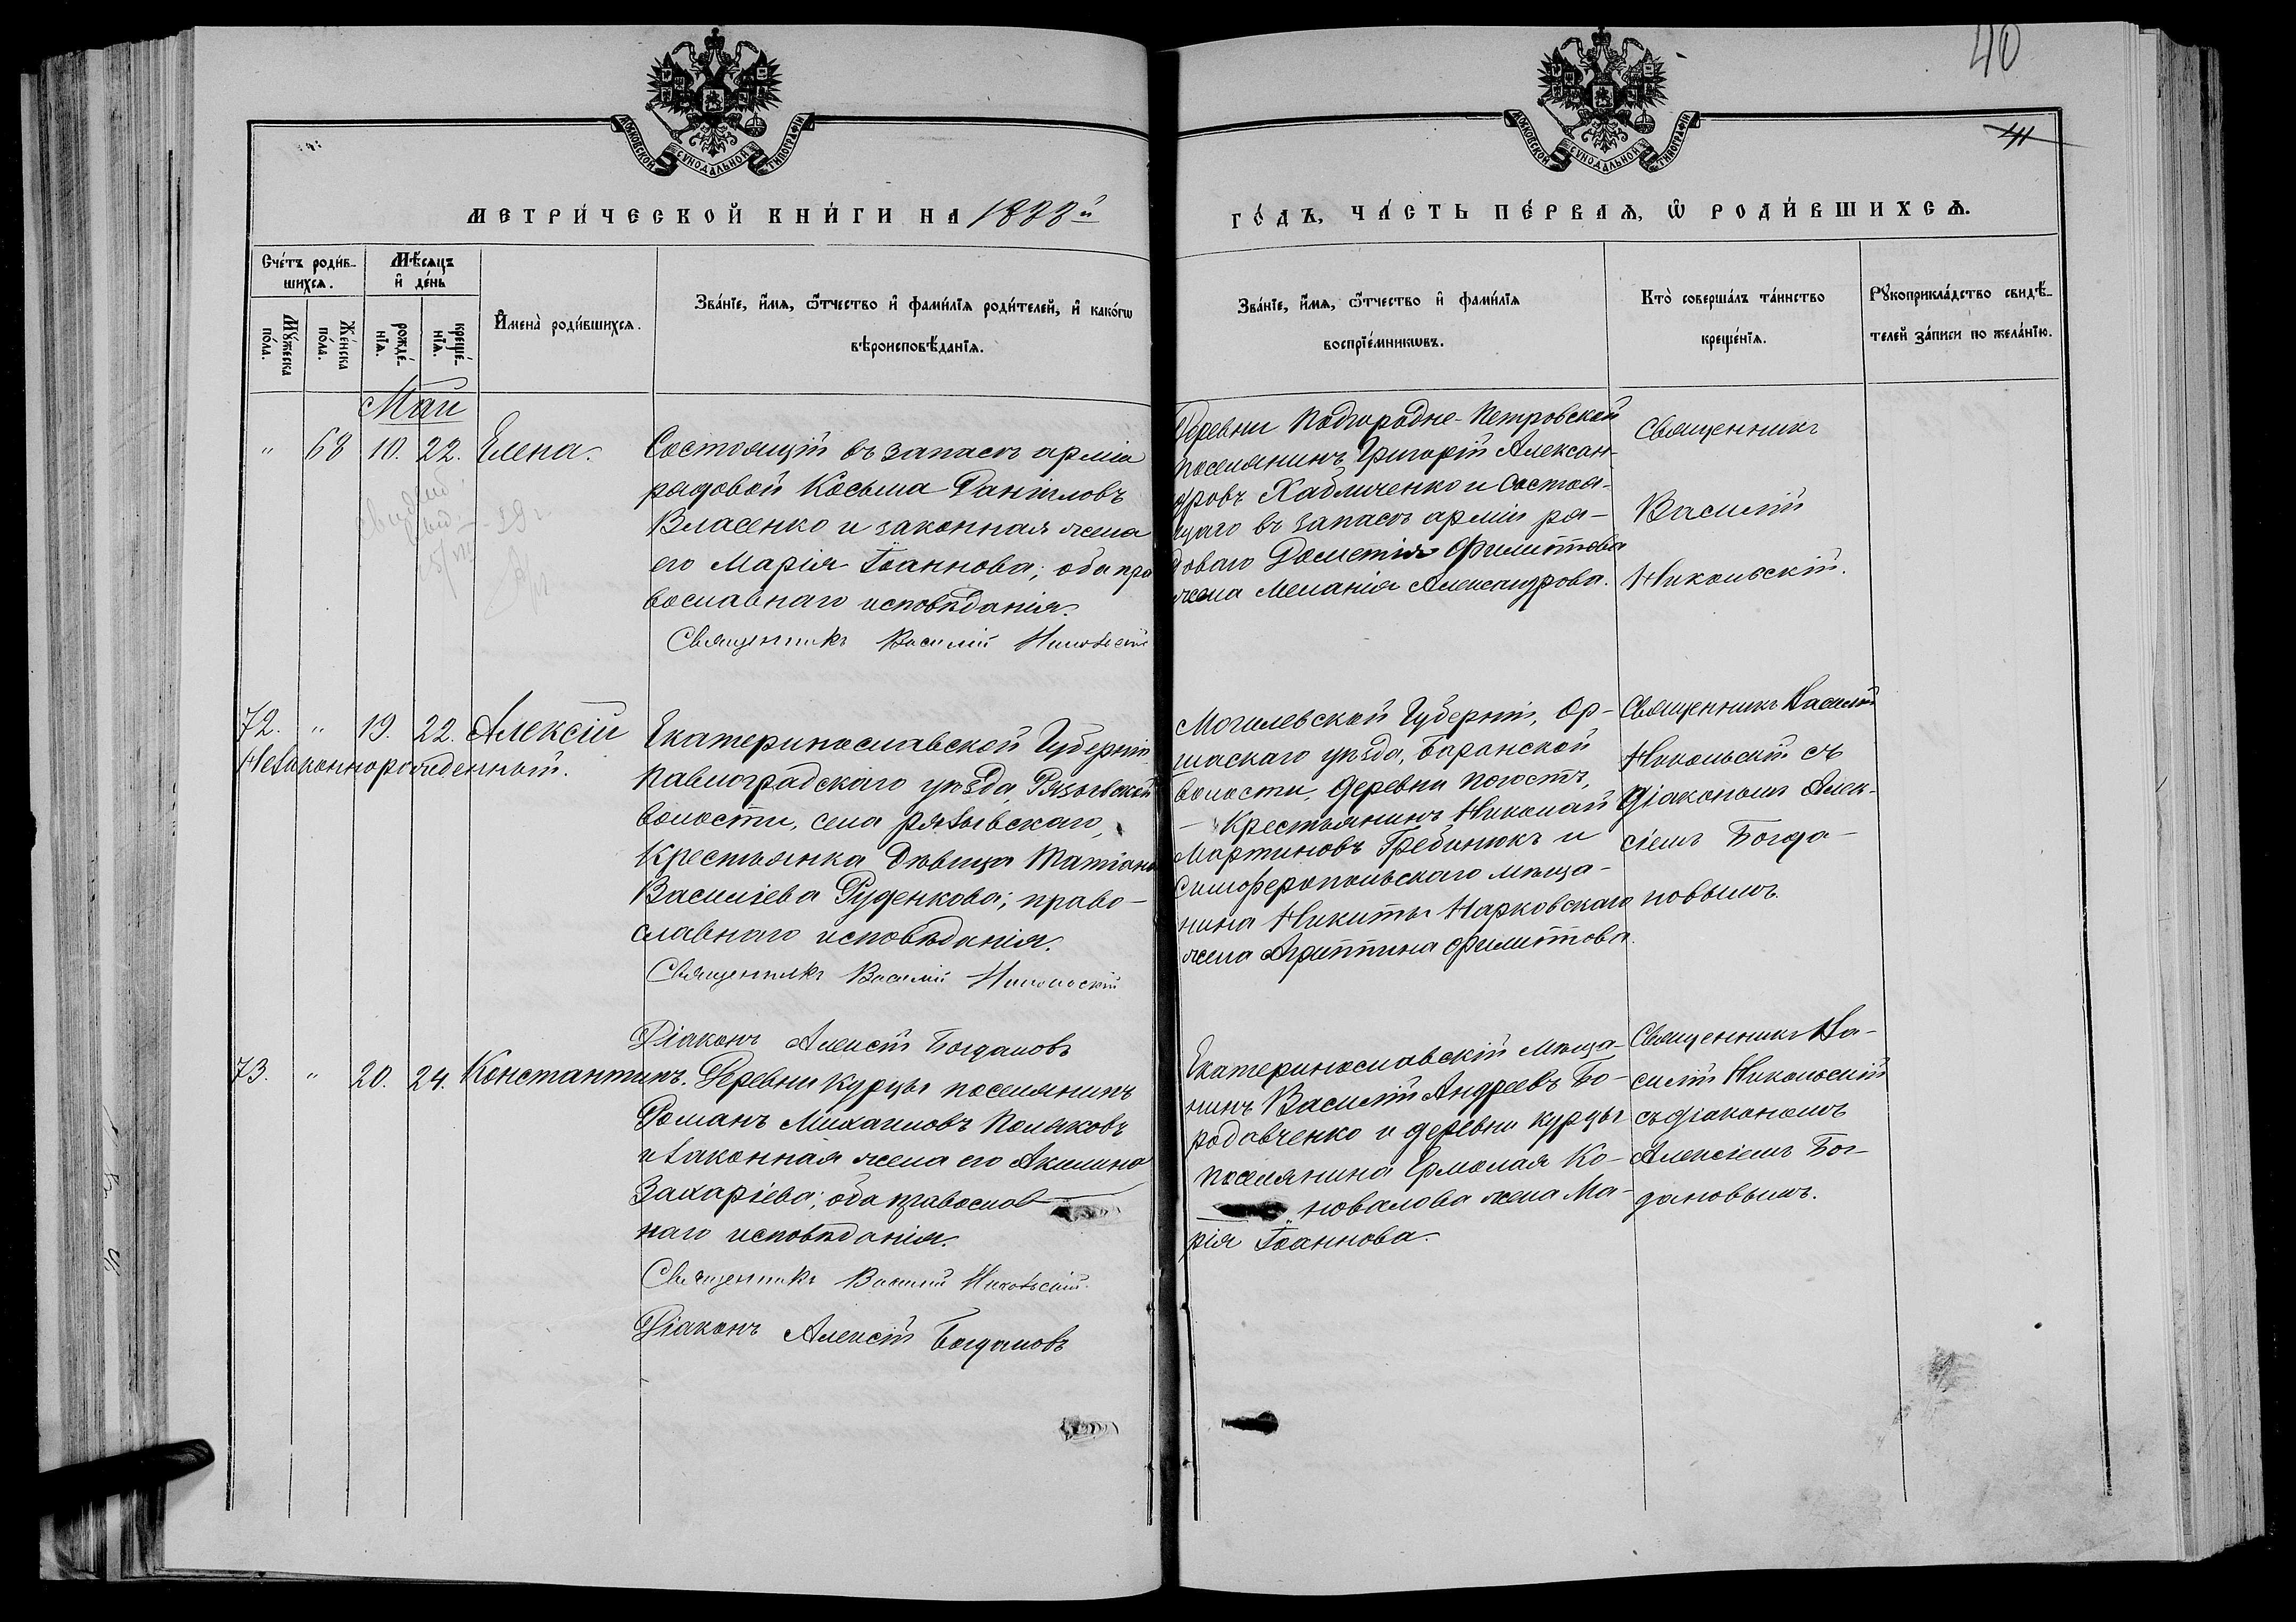 40
41
МОСКОВСКОЙ СѴНОДАЛЬНОЙ ТИПОГРАФІИ
МОСКОВСКОЙ СѴНОДАЛЬНОЙ ТИПОГРАФІИ
МЕТРИ́ЧЕСКОЙ КНИ́ГИ НА 1888й
ГО́ДЪ, ЧА́СТЬ ПЕ́РВАѦ, Ѡ҆ РОДИ́ВШИХСѦ.
Сче́тъ роди́в-
шихсѧ.
Мѣ́сѧцъ
и҆ де́нь
Мꙋ́жеска
по́ла.
Же́нска
по́ла.
рожде́-
нїѧ.
креще́-
нїѧ.
И҆мена̀ роди́вшихсѧ.
Зва́нїе, и҆́мѧ, ѻ҆́тчество и҆ фами́лїѧ роди́телей, и҆ како́гѡ
вѣроисповѣ́данїѧ.
Зва́нїе, и҆́мѧ, ѻ҆́тчество и҆ фами́лїѧ
воспрїе́мникѡвъ.
Кто̀ соверша́лъ та́инство
креще́нїѧ.
Рꙋкоприкла́дство свидѣ́-
телей за́писи по жела́нїю.
Май
" 68 10. 22. Елена.
Состоящій въ запасѣ арміи
рядовой Косьма Даніиловъ
Власенко и законная жена
его Марія Іоаннова; оба пра
вославнаго исповѣданія.
Священникъ Василій Никольскій
Деревни Подгородне-Петровской
поселянинъ Григорій Алексан-
дровъ Хабличенко и состоя-
щаго въ запасѣ арміи ря-
доваго Дометія Филиппова
жена Меланія Александрова.
Священникъ
Василій
Никольскій.
72. " 19. 22. Алексій
Незаконнорожденный.
Екатеринославской Губерніи
Павлоградскаго уѣзда,
волости, села
Крестьянка Дѣвица Татіана
Василіева Руденкова; право-
славнаго исповѣданія.
Священникъ Василій Никольскій
Діаконъ Алексій Богдановъ
Могилевской Губерніи, Ор-
шаскаго уѣзда, Баранской
волости, деревни Погостъ,
Крестьянинъ Николай
Мартиновъ Гребинюкъ и
Симферопольскаго мѣща-
нина Никиты Марковскаго
жена Агриппина Филиппова.
Священникъ Василій
Никольскій съ
Діакономъ Алек-
сіемъ Богда-
новымъ.
73. " 20. 24. Константинъ.
Деревни Курцы поселянинъ
Романъ Михаиловъ Поляковъ
и законная жена его Акилина
Захаріева; оба православ
наго исповѣданія.
Священникъ Василій Никольскій.
Діаконъ Алексій Богдановъ
Екатеринославскій мѣща-
нинъ Василій Андреевъ Бо-
родавченко и деревни Курцы
поселянина Ермолая Ко-
новалова жена Ма-
рія Іоаннова.
Священникъ Ва-
силій Никольскій
съ діакономъ
Алексіемъ Бог-
дановымъ.